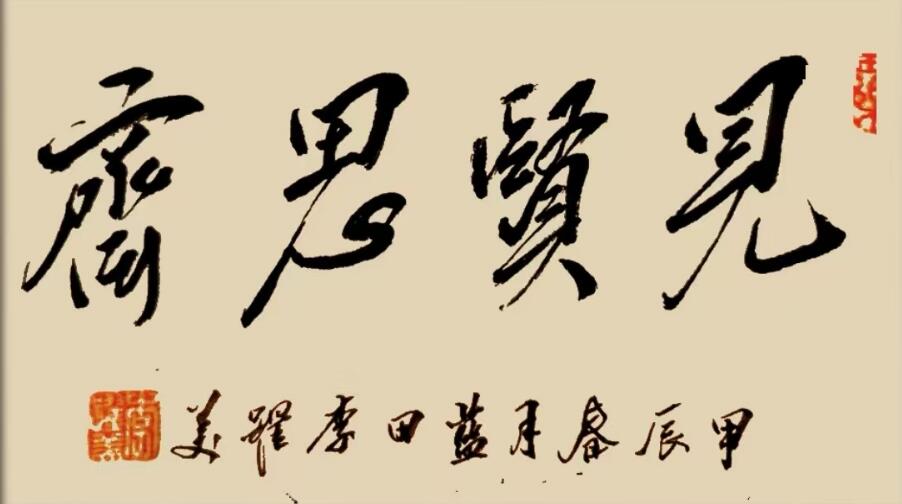 見賢思齊
甲辰春月藍田李躍美